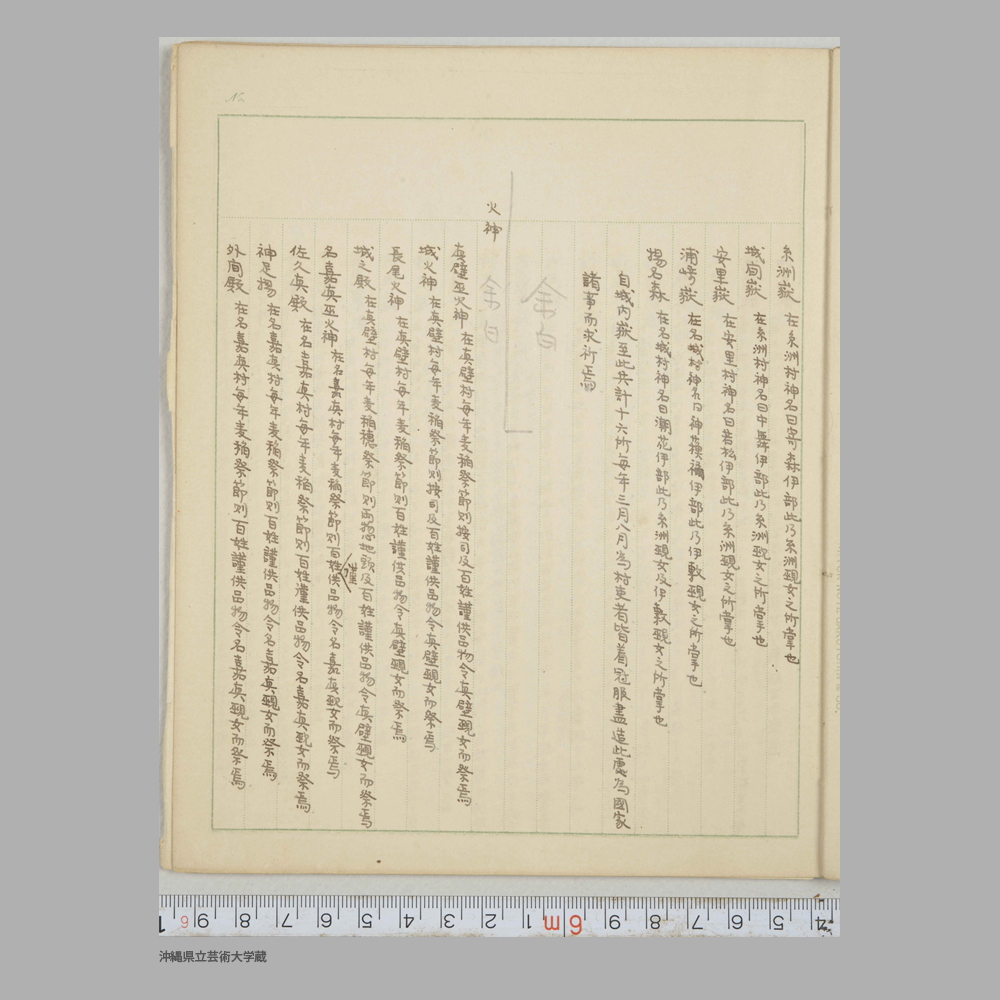 糸洲嶽 在糸洲村神名曰寄森伊部此乃糸洲覡女之所掌也
城間嶽 在糸洲村神名曰中森伊部此乃糸洲覡女之所掌也
安里嶽 在安里村神名曰若松伊部此乃糸洲覡女之所掌也
浦崎嶽 在名城村神名曰神英橋伊部此乃伊敷覡女之所掌也
揚名森 在名城村神名曰瀾花伊部此乃糸洲覡女及伊敷覡女之所掌也
自城内嶽至此共計十六所毎年三月八月為村吏者皆著冠服盡造此應為國家
諸事而求祈焉
余白
余白
火神
真壁巫火神 在真壁村毎年麦稲祭節則按司及百姓謹供品物令真壁覡女而祭焉
城火神 在真壁村毎年麦稲祭節則按司及百姓謹供品物令真壁覡女而祭焉
長尾火神 在真壁村毎年麦稲祭節則百姓謹供品物令真壁覡女而祭焉
城之殿 在真壁村毎年麦稲穂祭節則両惣地頭及百姓謹供品物令真壁覡女而祭焉
名嘉真巫火神 在名嘉真村毎年麦稲祭節則百姓謹供品物令名嘉真覡女而祭焉
佐久真殿 在名嘉真村毎年麦稲祭節則百姓謹供品物令名嘉真覡女而祭焉
神足揚 在名嘉真村毎年麦稲祭節則百姓謹供品物令名嘉真覡女而祭焉
外間殿 在名嘉真村毎年麦稲祭節則百姓謹供品物令名嘉真覡女而祭焉
No.
沖縄県立芸術大学蔵